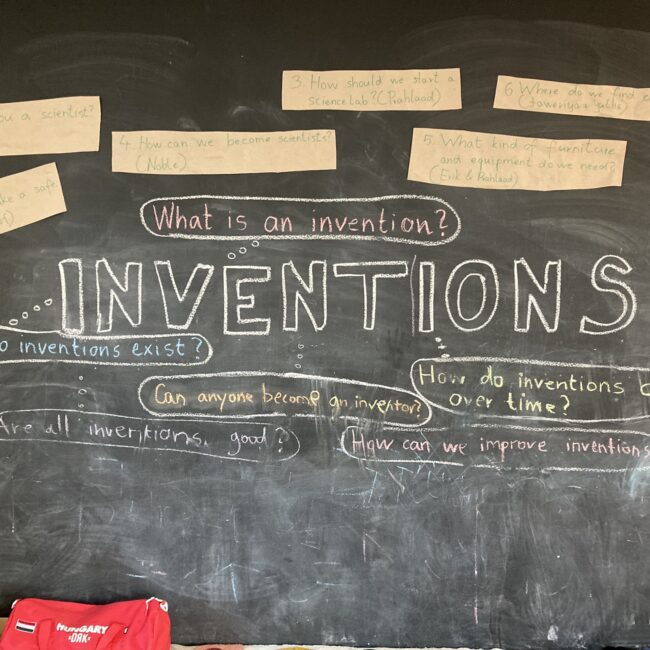 ou a scientist?
ke a safe
3. How should we start a
science lab? (Prahlaad)
4. How can we become scientists?
(Noble)
5. What kind of furniture
and equipment do we need?
(Erik & Prahlaad)
6. Where do we find
What is an invention?
INVENTIONS
o inventions exist?
Can anyone become an inventor?
How do inventions
over time?
Are all inventions good?
How can we improve inventions
HUNGARY